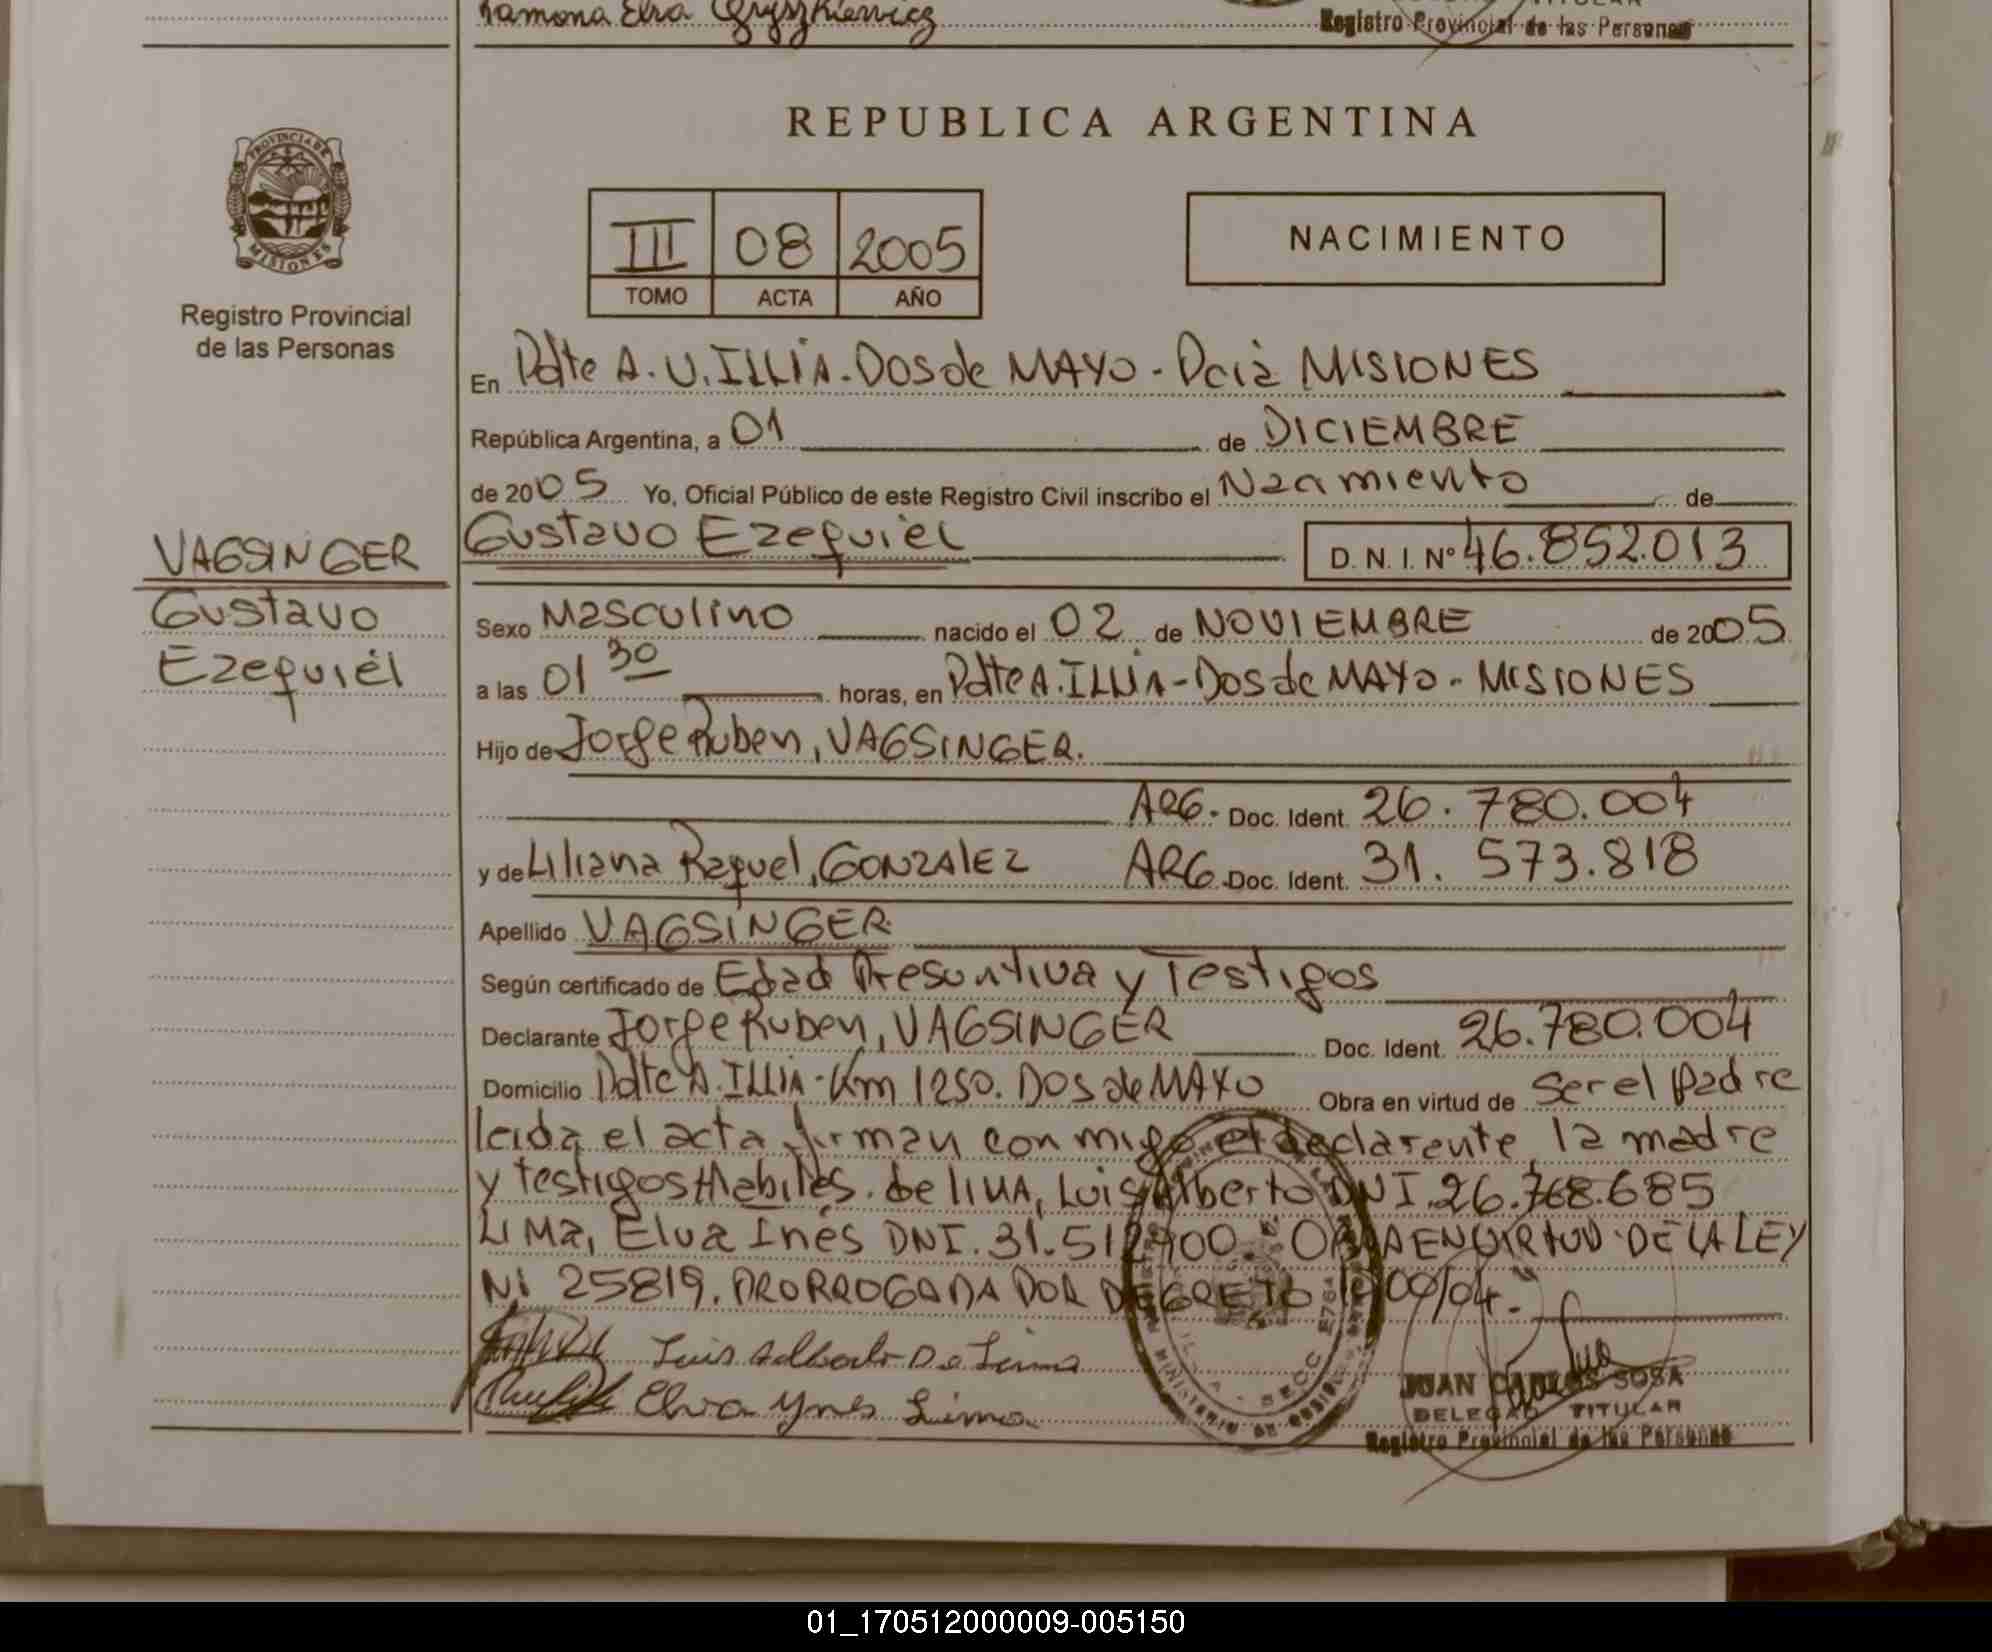 Ramona Elva Gryszkiewicz
TITULAR
Registro Provincial de las Personas
REPUBLICA ARGENTINA
PROVINCIA DE
MISIONES
Registro Provincial
de las Personas
III 08 2005
TOMO ACTA AÑO
NACIMIENTO
En Pdte A. U. ILLIA. Dos de MAYO - Pcia MISIONES
República Argentina, a 01 de DICIEMBRE
de 2005 Yo, Oficial Público de este Registro Civil inscribo el Nacimiento de
Gustavo Ezequiel D. N. I. Nº 46.852.013
VAGSINGER
Gustavo
Ezequiel
Sexo Masculino nacido el 02 de NOVIEMBRE de 2005
a las 01 30 horas, en Pdte A. ILLIA - Dos de MAYO - MISIONES
Hijo de Jorge Ruben, VAGSINGER.
ARG. Doc. Ident. 26.780.004
y de Liliana Raquel, GONZALEZ ARG. Doc. Ident. 31.573.818
Apellido VAGSINGER
Según certificado de Edad Presuntiva y Testigos
Declarante Jorge Ruben, VAGSINGER Doc. Ident. 26.780.004
Domicilio Pdte A. ILLIA - Km 1250. Dos de MAYO Obra en virtud de Ser el padre
leida el acta firman con migo el declarente, la madre
y testigos Habiles. De LIMA, Luis Alberto DNI. 26.768.685
LIMA, Elva Inés DNI. 31.512.900. OBRA EN VIRTUD DE LA LEY
N: 25819. PRORROGADA POR DECRETO /04.-
Luis Alberto De Lima
Elva Ynes Lima
JUAN CARLOS SOSA
DELEGADO TITULAR
Registro Provincial de las Personas
01_170512000009-005150